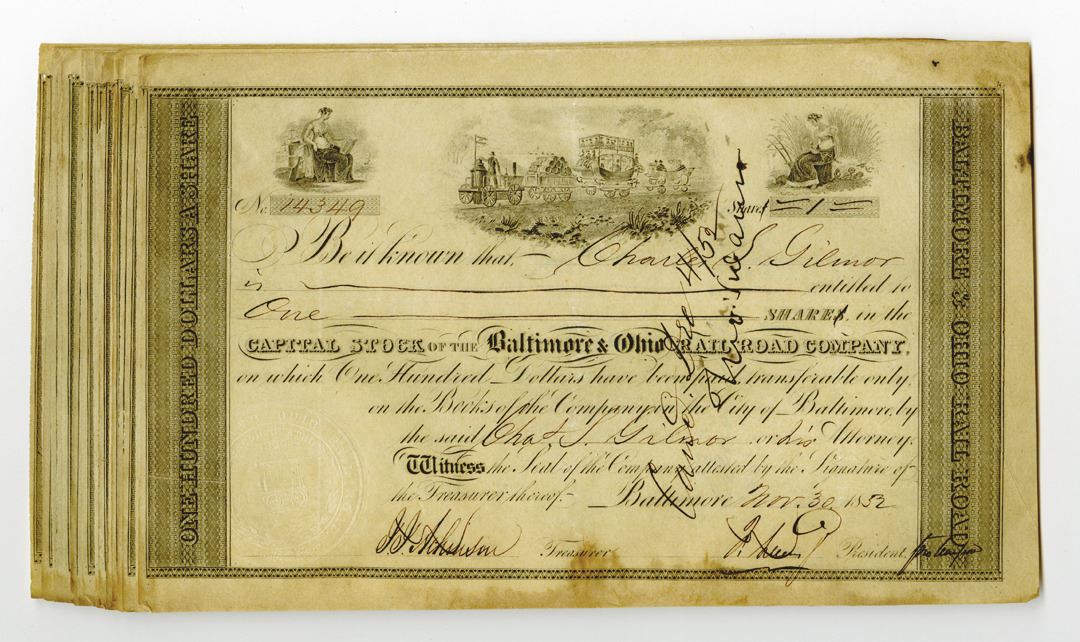 No. 14349
Shares – 1 –
Be it known that, Charles S. Gilmor
is entitled to
One SHARES in the
CAPITAL STOCK OF THE Baltimore & Ohio RAIL ROAD COMPANY,
on which One Hundred Dollars have been paid, transferable only,
on the Books of the Company, in the City of Baltimore, by
the said Chas. S. Gilmor or his Attorney.
Witness the Seal of the Company attested by the Signature of
the Treasurer thereof. Baltimore Nov. 30 1852
Treasurer
President
ONE HUNDRED DOLLARS A SHARE
BALTIMORE & OHIO RAIL ROAD